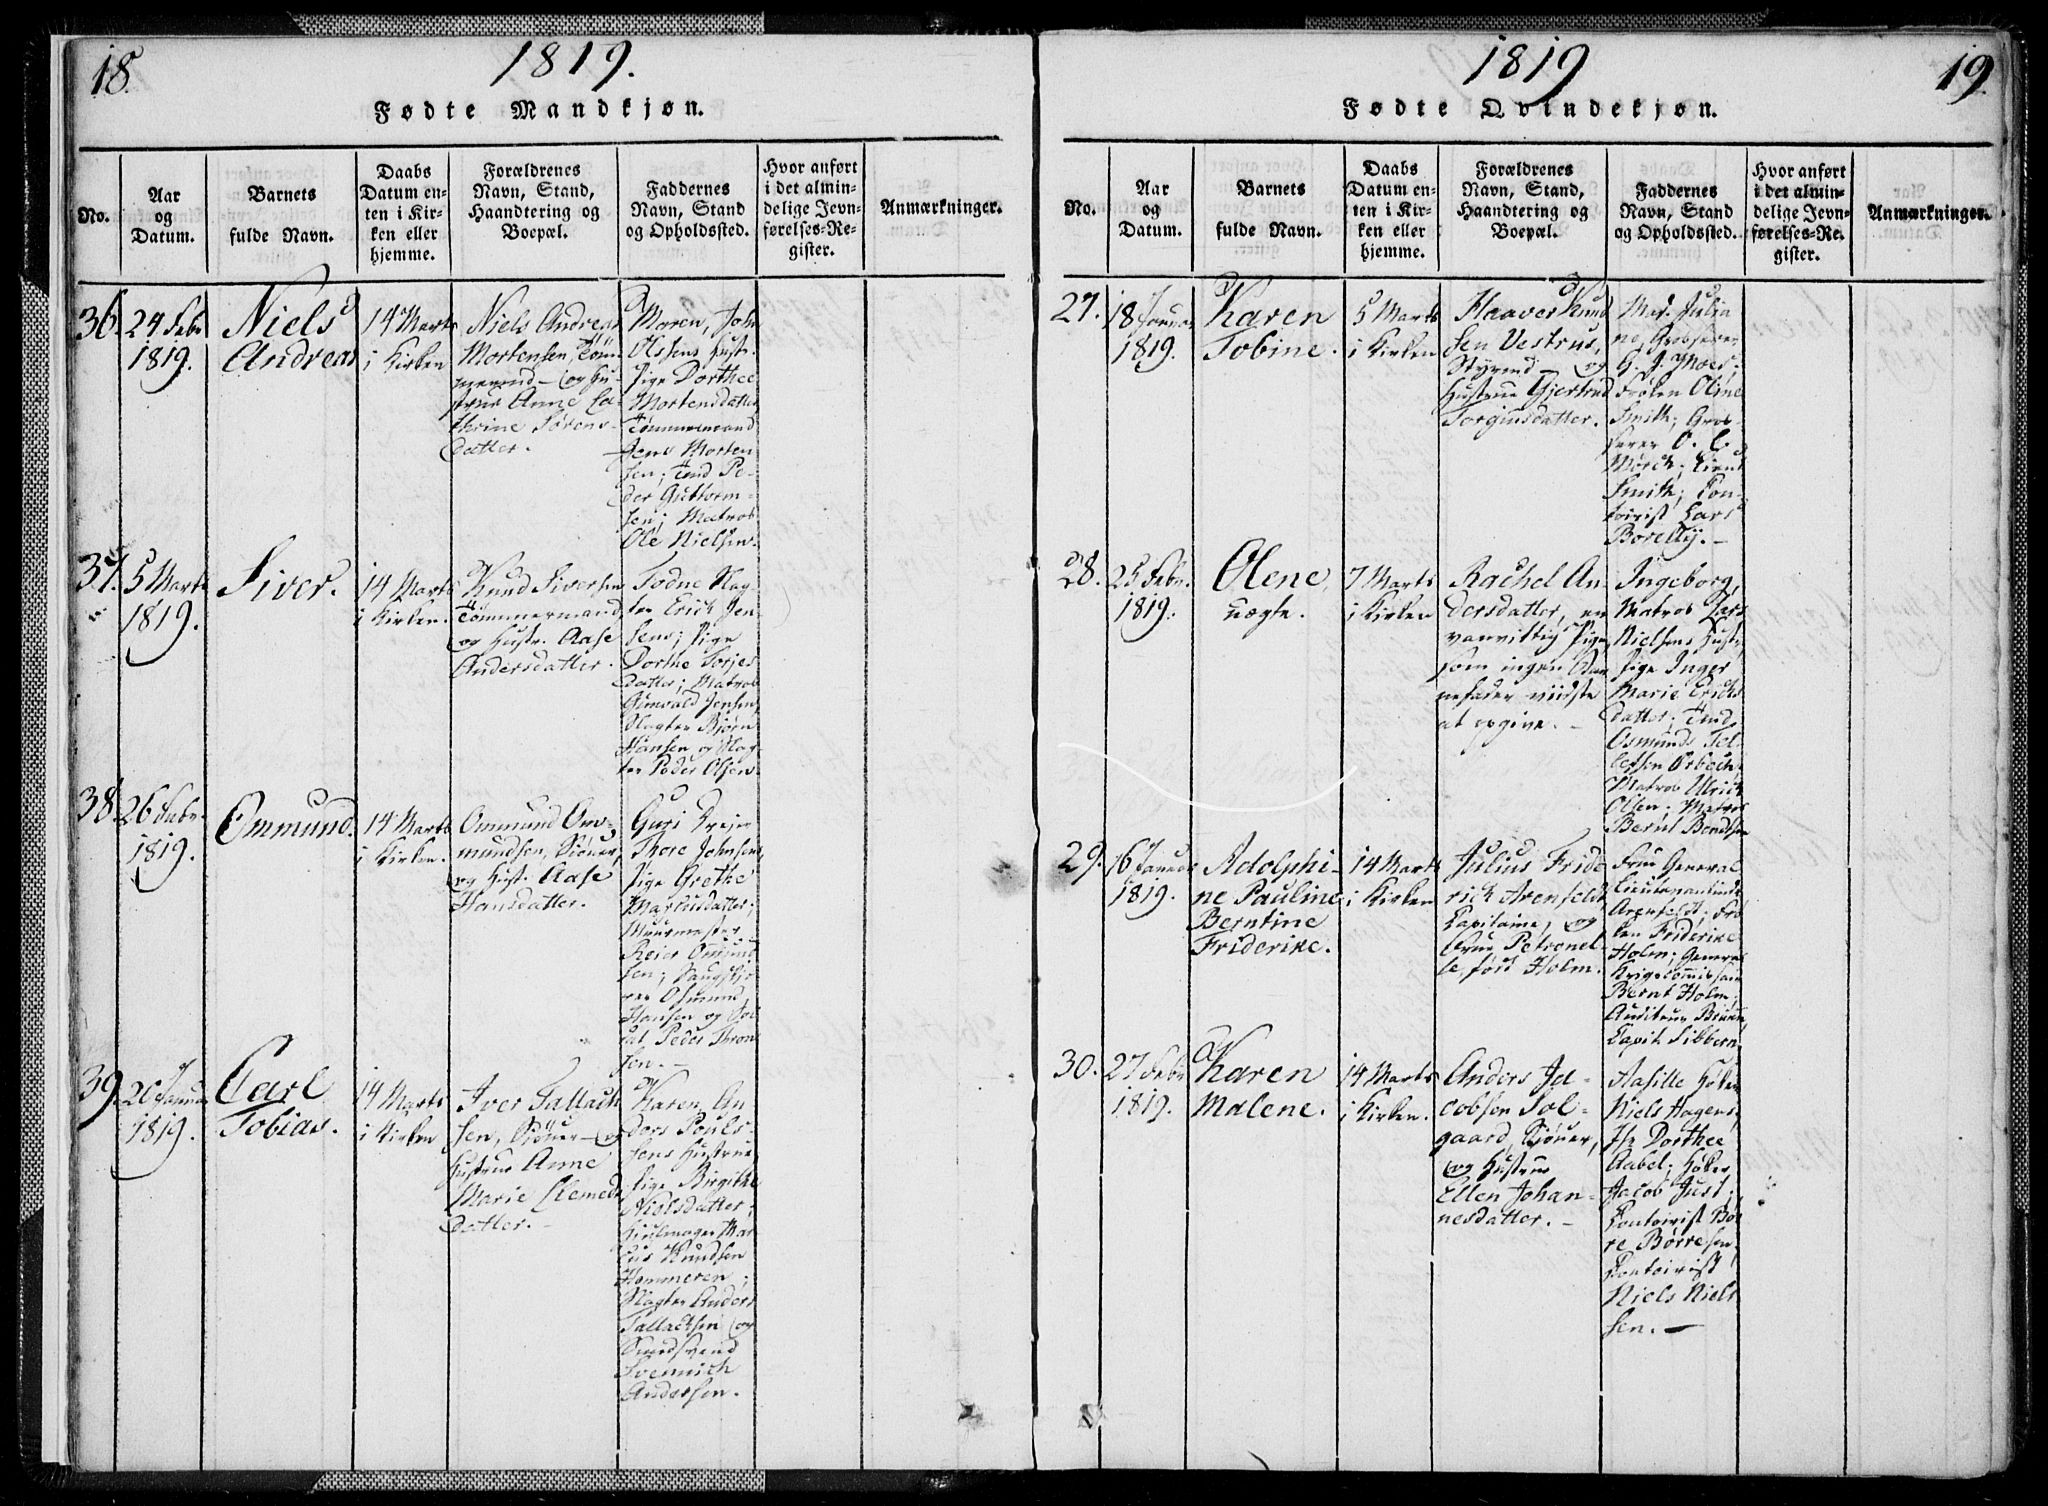 18.
1819.
Fødte Mandkjøn.
No.
Aar
og
Datum.
Barnets
fulde Navn.
Daabs
Datum en-
ten i Kir-
ken eller
hjemme.
Forældrenes
Navn, Stand,
Haandtering og
Boepæl.
Faddernes
Navn, Stand
og Opholdssted.
Hvor anført
i det almin-
delige Jevn-
førelses-Re-
gister.
Anmærkninger.
36.
24 Febr
1819.
Niels
Andreas
14 Marts
i Kirken
Niels Andreas
Mortensen, Töm-
mermd- og Hu-
strue Anne Ca-
thrine Sörens-
datter.
Maren, John
Olssens Hustr.
Pige Dorthee
Mortensdatter
Tömmermand
Jens Morten
sen; Tmd Pe-
der Guttorm-
sen; Matros
Ole Nielsen.
37.
5 Marts
1819.
Siver.
14 Marts
i Kirken.
Knud Siversen
Tömmermand,
og Hustr. Aase
Andersdatter.
Todne Slag-
ter Erich Jen-
sens; Pige
Dorthe Torjes
datter; Matros
Gunvald Jensen
Slagter Björn
Hansen og Slag-
ter Peder Olsen.
38.
26 Febr.
1819.
Ommund.
14 Marts
i Kirken.
Ommund Om-
mundsen, Siöuer,
og Hust. Aase
Hansdatter.
Guri Dreier
Thore Johnsens,
Pige Grethe
Markusdatter;
Muurmester
Reier Ommund
sen;
Osmund
Hansen og Sol-
dat Peder Thron
sen.-
39.
20 Januar
1819.
Carl
Tobias.
14 Marts
i Kirken
Iver Tallach
sen, Siöuer- og
Hustrue Anne
Marie Clemeds
datter.-
Karen, An
ders Pouls-
sens Hustrue
Pige Birgithe
Nielsdatter;
Hiulmager Mar
cus Knudsen
Hommeren;
Slagter Anders
Tallachsen og
Smedsvend
Svennich
Andersen.
1819
19.
Fødte Qvindekjøn.
No.
Aar
og
Datum.
Barnets
fulde Navn.
Daabs
Datum en-
ten i Kir-
ken eller
hjemme.
Forældrenes
Navn, Stand,
Haandtering og
Boepæl.
Faddernes
Navn, Stand
og Opholdssted.
Hvor anført
i det almin-
delige Jevn-
førelses-Re-
gister.
Anmærkninger.
27.
18 Januar
1819.
Karen
Tobine.
5 Marts
i Kirken
Haaver Knud
sen Vestrus,
Styrmd- og
Hustrue Gjertrud
Torgiusdatter.
Mad. Julia
ne, Grosserer
H. J. Moes;
Fröken Oline
Smith; Gros-
serer O. C.
Mörch; Lieut
Smith; Con-
toirist Lars
28.
25 Febr.
1819.
Olene,
uægte.
7 Marts
i Kirken
Rachel An
dersdatter, en
vanvittig Pige,
som ingen Bar
nefader vidste
at opgive.-
Ingeborg,
Matros Lars
Nielsens Hust.
Pige Inger
Marie Erichs
datter; Tmd.
Osmund Tel-
lefsen Örbech;
Matros Ulrich
Olsen. Matros
Bernt Bendtsen
29.
16 Januar
1819.
Adolphi-
ne Pauline
Berntine
Friderike.
14 Marts
i Kirken
Julius Fride
rich Arenfeldt,
Capitaine, og
Frue Petronel-
le, föd Holm.
Frue General
Lieutenantinde
Arenfeldt; Frö
ken Friderike
Holm; General
Krigscommissair
Bernt Holm;
Auditeur Bruun,
Capit. Sibbern.
30.
27 Febr
1819.
Karen
Malene.
14 Marts
i Kirken.
Anders Ja-
cobsen Sol-
gaard, Siöuer,
og Hustrue
Ellen Johan-
nesdatter.-
Aasille Höker
Niels Hagens,
Jfr Dorthee
Aabel; Höker
Jacob Just;
Contoirist Bör
re Börresen,
Contoirist
Niels Niels
sen.-